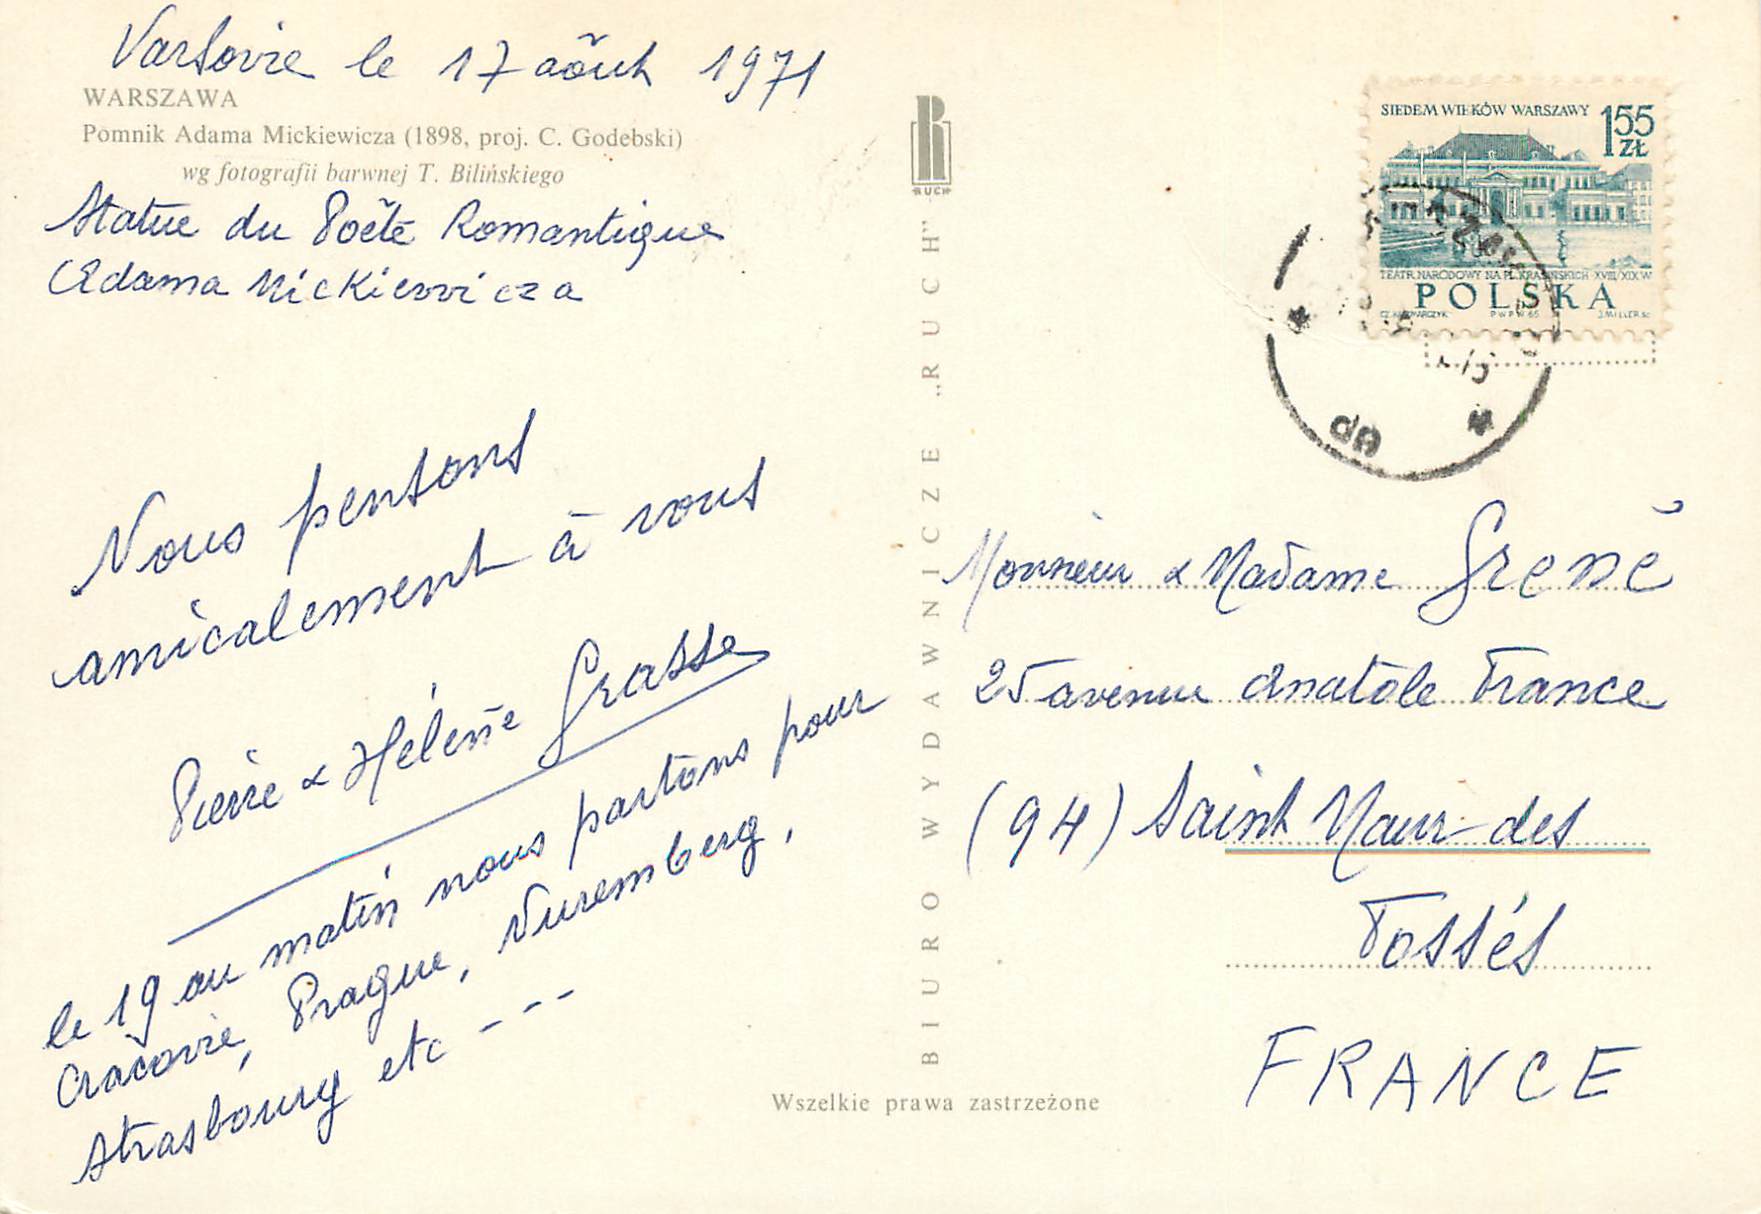 Varsovie le 17 août 1971
WARSZAWA
Pomnik Adama Mickiewicza (1898, proj. C. Godebski)
wg fotografii barwnej T. Bilińskiego
Statue du Poète Romantique
Adama Mickiewicza
Nous pensons
amicalement à vous
Pierre & Hélène Grasse
le 19 au matin nous partons pour
Cracovie, Prague, Nuremberg,
Strasbourg etc ---
RUCH
BIURO WYDAWNICZE „RUCH”
Wszelkie prawa zastrzeżone
SIEDEM WIEKÓW WARSZAWY 155 ZŁ
TEATR NARODOWY NA PL. KRASIŃSKICH·XVIII/XIX W
POLSKA
PWPW 65 J. MILLER sc
Monsieur & Madame Grené
25 avenue Anatole France
(94) Saint Maur-des
Fossés
FRANCE